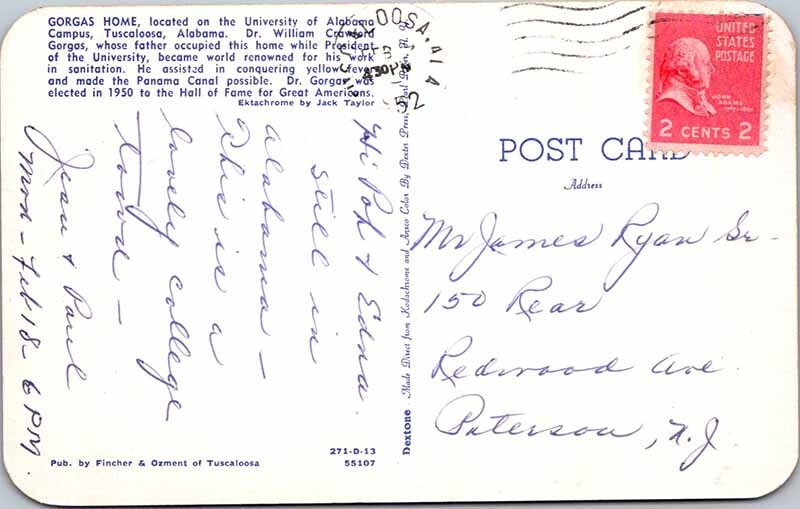 GORGAS HOME, located on the University of Alabama
Campus, Tuscaloosa, Alabama. Dr. William Crawford
Gorgas, whose father occupied this home while President
of the University, became world renowned for his work
in sanitation. He assisted in conquering yellow fever
and made the Panama Canal possible. Dr. Gorgas was
elected in 1950 to the Hall of Fame for Great Americans.
Ektachrome by Jack Taylor
Hi Pop & Edna
Still in
Alabama -
This is a
lovely college
town -
Jean & Paul
Mon - Feb 18 - 6 PM.
271-D-13
Pub. by Fincher & Ozment of Tuscaloosa
55107
Dextone
Made Direct from Kodachrome and Ansco Color By Dexter Press, Pearl River, N. Y.
430 PM
UNITED
STATES
POSTAGE
JOHN
ADAMS
2 CENTS 2
POST CARD
Address
Mr James Ryan Sr -
150 Rear
Redwood Ave
Paterson, N.J.